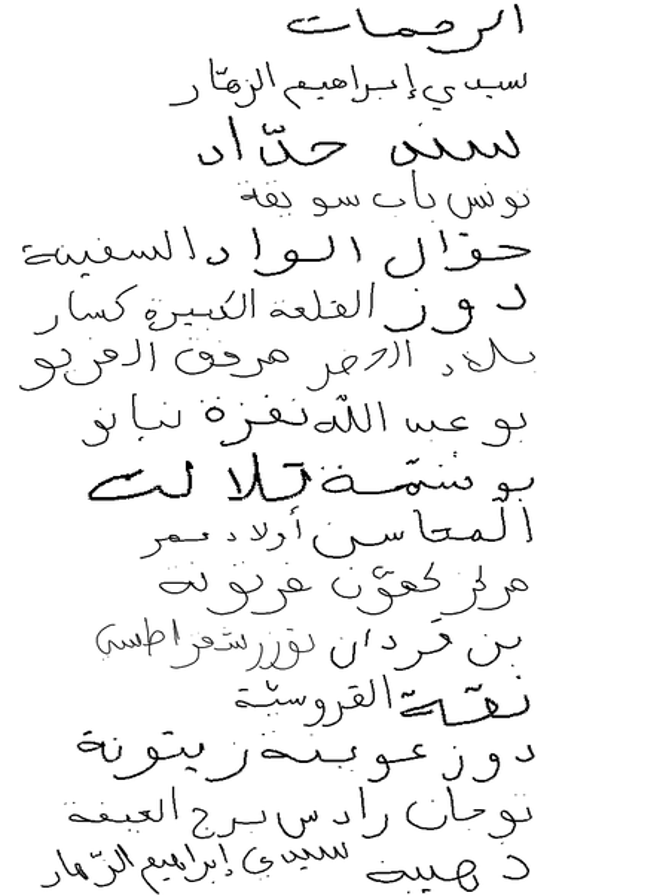 الرحمات
سيدي إبراهيم الزهّار
سند حدّاد
تونس باب سويقة
حوّال الواد السفينة
دوز القلعة الكبيرة كسار
مرفق
بو عبد الله نفزة نيانو
بو شمّة تلالت
المحاسن أولاد عمر
مركز كعوّن
بن قردان توزر شفراطسي
نقّة القروسيّة
دوز عوينة زيتونة
توجان رادس برج العيفة
ذهيبة سيدي إبراهيم الزّهار